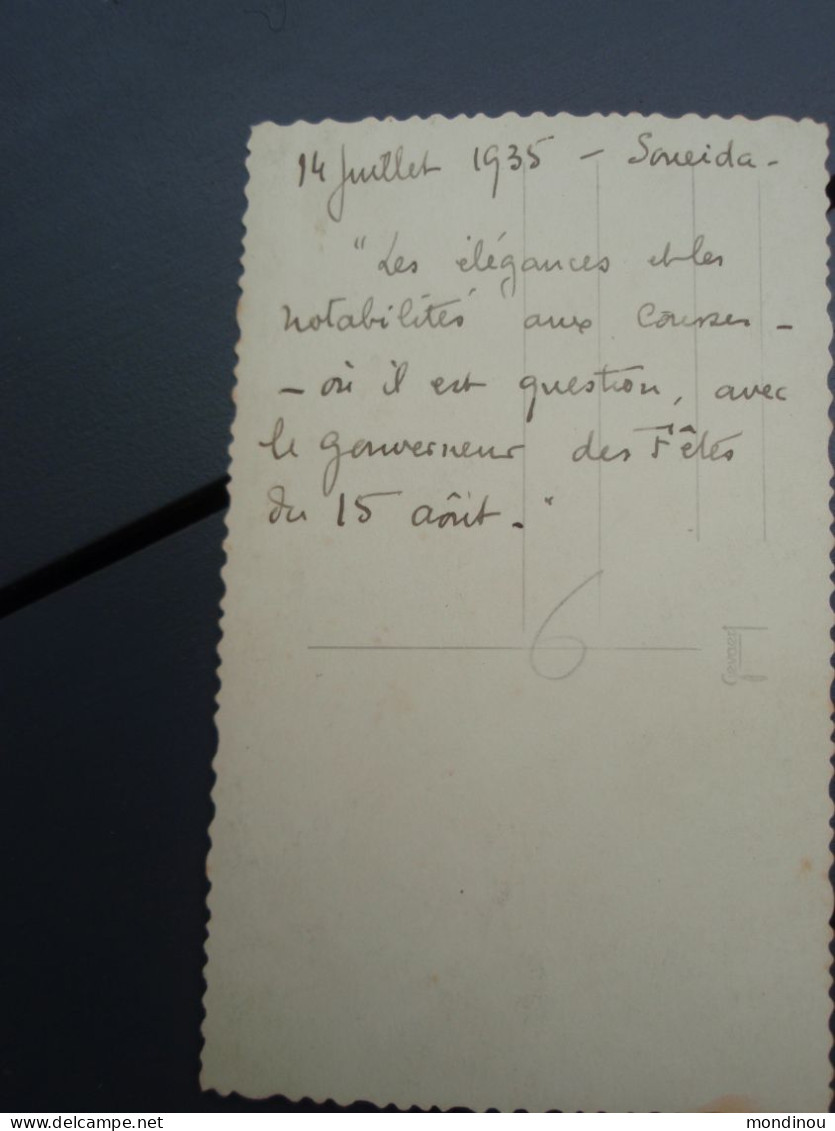 14 Juillet 1935 – Soueida –
"Les élégances et les
notabilités" aux courses –
– où il est question, avec
le gouverneur des Fêtes
du 15 août. – "
6
Gevaert
mondinou